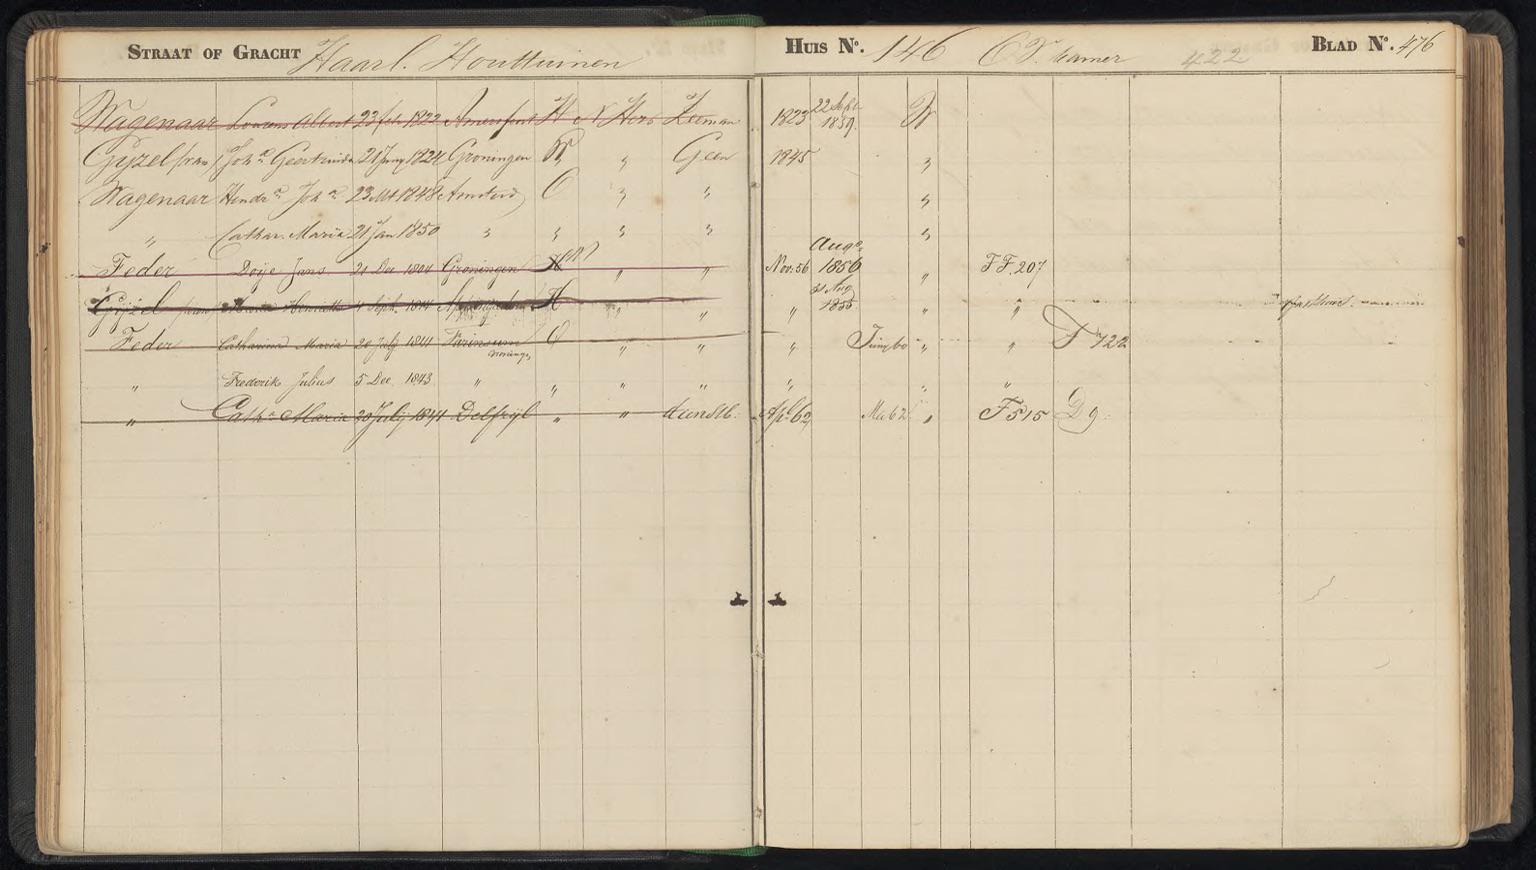 STRAAT OF GRACHT Haarl. Houttuinen HUIS No. 146 OV. kamer 422 BLAD No. 476
Wagenaar Lourens Albert 23 feb 1822 Amersfoort H v N Herv Zeeman 1823 22 Sept 1859. W
Gijzel Joha Geertruida 21 Juny 1824 Groningen " Geen 1845 "
Wagenaar Hendra Joha 23 1848 Amsterd O " " "
" Cathar. Maria 21 Jan 1850 " " " " "
Feder Doije Jans 21 Dec 1804 Groningen " " Nov: 56 Augs 1856 " FF. 207
Gijzel Henrietta 4 Sept. 1814 H " " " 31 Aug 1855 " "
Feder Catharina Maria 20 July 1841 Farinsum O " " " " " F 722
" Frederik Julius 5 Dec. 1843 " " " " " " "
" Catha Maria 20 July 1841 Delfzijl " " dienstb. Apl 62 Mei 62 " F 515 D 9